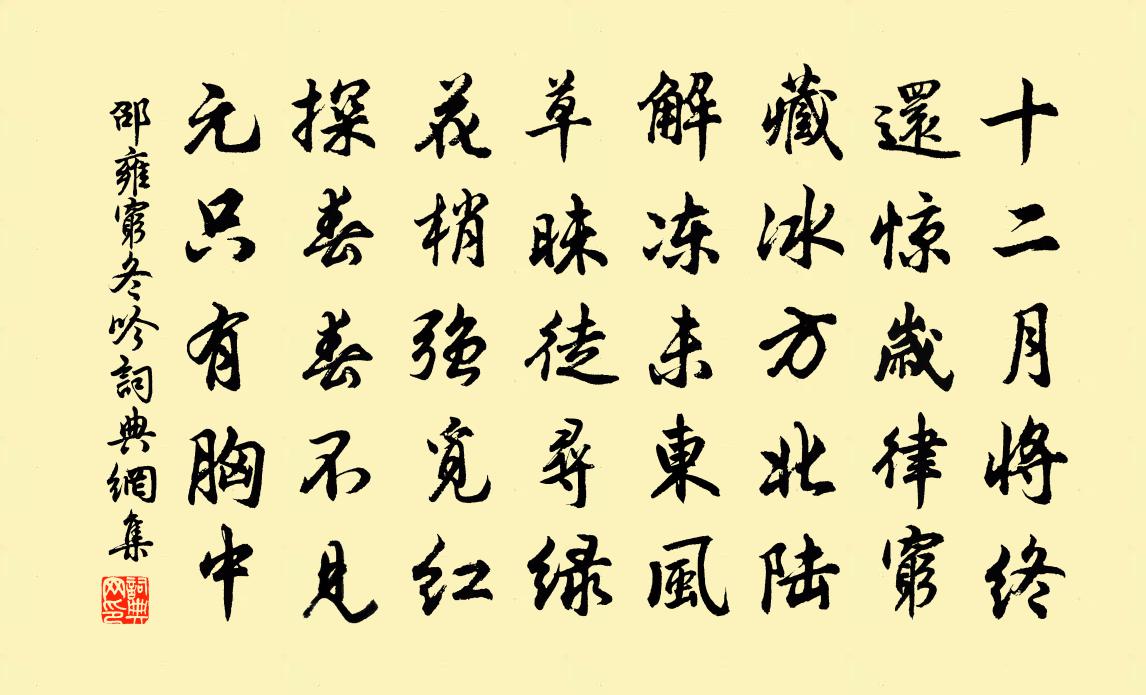 十二月將终
還惊歲律窮
藏冰方北陆
解冻未東風
草昧徒尋绿
花梢強觅红
探春春不見
元只有胸中
邵雍窮冬吟詞典網集
詞典网印